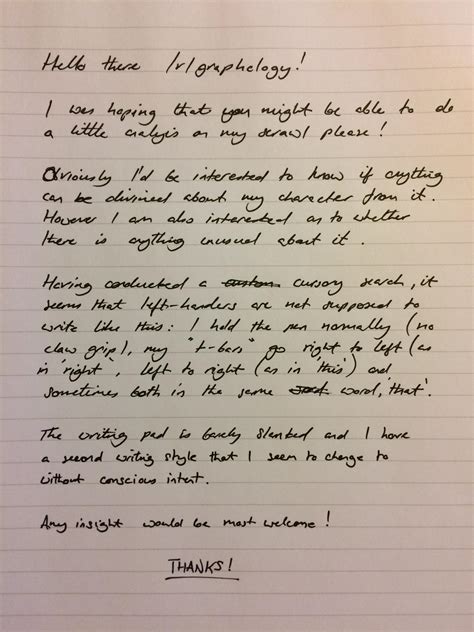 Hello there /r/graphology!
I was hoping that you might be able to do
a little analysis on my scrawl please!
Obviously I'd be interested to know if anything
can be divined about my character from it.
However I am also interested as to whether
there is anything unusual about it.
Having conducted a custom cursory search, it
seems that left-handers are not supposed to
write like this: I hold the pen normally (no
claw grip), my "t-bars" go right to left (as
in 'right', left to right (as in 'this') and
sometimes both in the same word, 'that'.
The writing pad is barely slanted and I have
a second writing style that I seem to change to
without conscious intent.
Any insight would be most welcome!
THANKS!